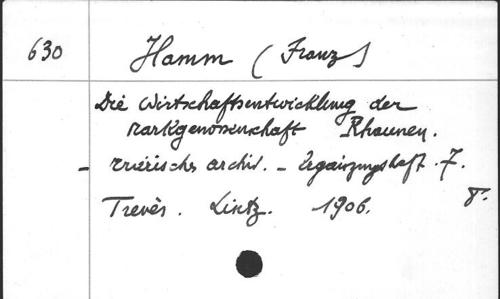 630 Hamm (Franz)
Die Wirtschaftsentwicklung der
Markgenossenschaft Rhaunen.
- Trierisches Archiv. - Ergänzungsheft. 7.
Trevès. Lintz. 1906. 8°.